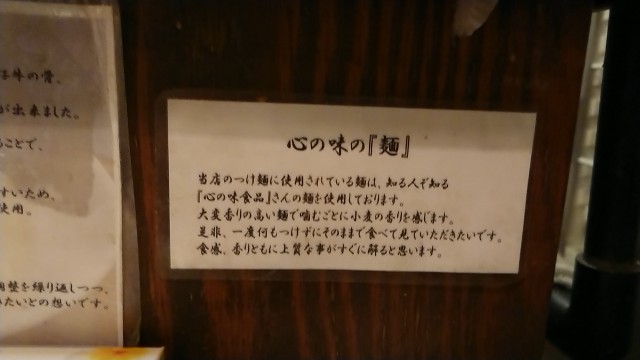 牛の骨、
が出来ました。
ことで、
すいため、
使用。
調整を繰り返しつつ、
たいとの想いです。
心の味の『麺』
当店のつけ麺に使用されている麺は、知る人ぞ知る
『心の味食品』さんの麺を使用しております。
大変香りの高い麺で噛むごとに小麦の香りを感じます。
是非、一度何もつけずにそのままで食べて見ていただきたいです。
食感、香りともに上質な事がすぐに解ると思います。